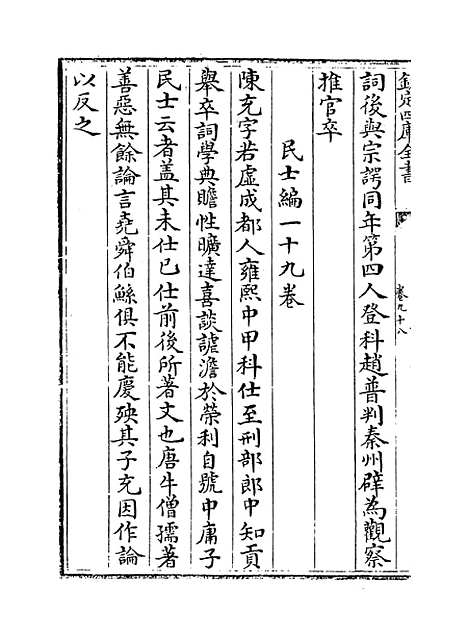 欽定四庫全書
卷九十八
詞後與宗諤同年第四人登科趙普判秦州辟為觀察
推官卒
民士編一十九卷
陳充字若虛成都人雍熙中甲科仕至刑部郎中知貢
舉卒詞學典贍性曠達喜談謔澹於榮利自號中庸子
民士云者盖其未仕已仕前後所著文也唐牛僧孺著
善惡無餘論言堯舜伯鯀俱不能慶殃其子充因作論
以反之